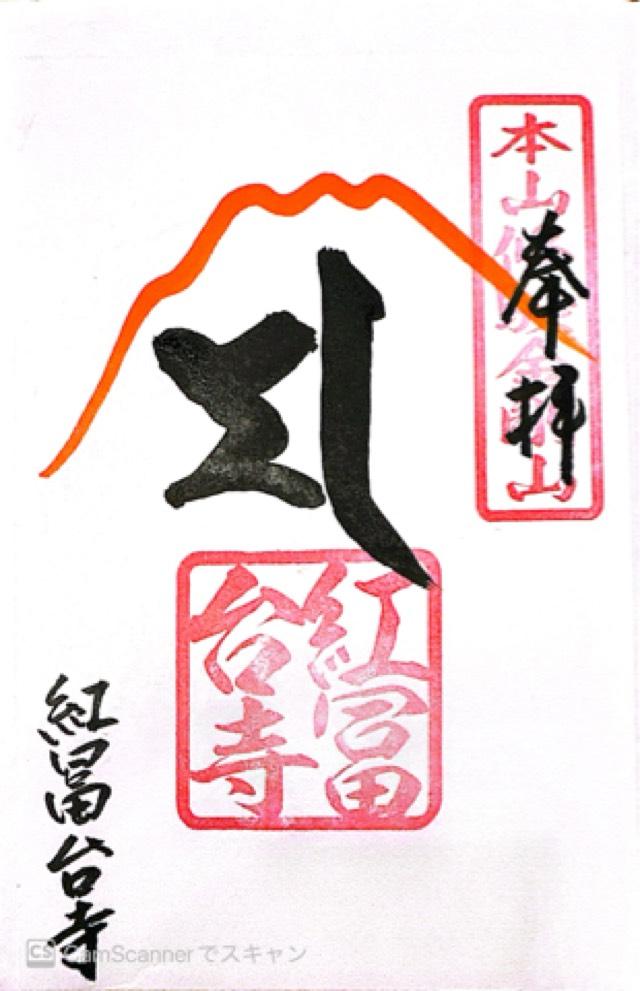 本山修験金剛山
奉拝
紅富
台寺
紅富台寺
CS CamScannerでスキャン